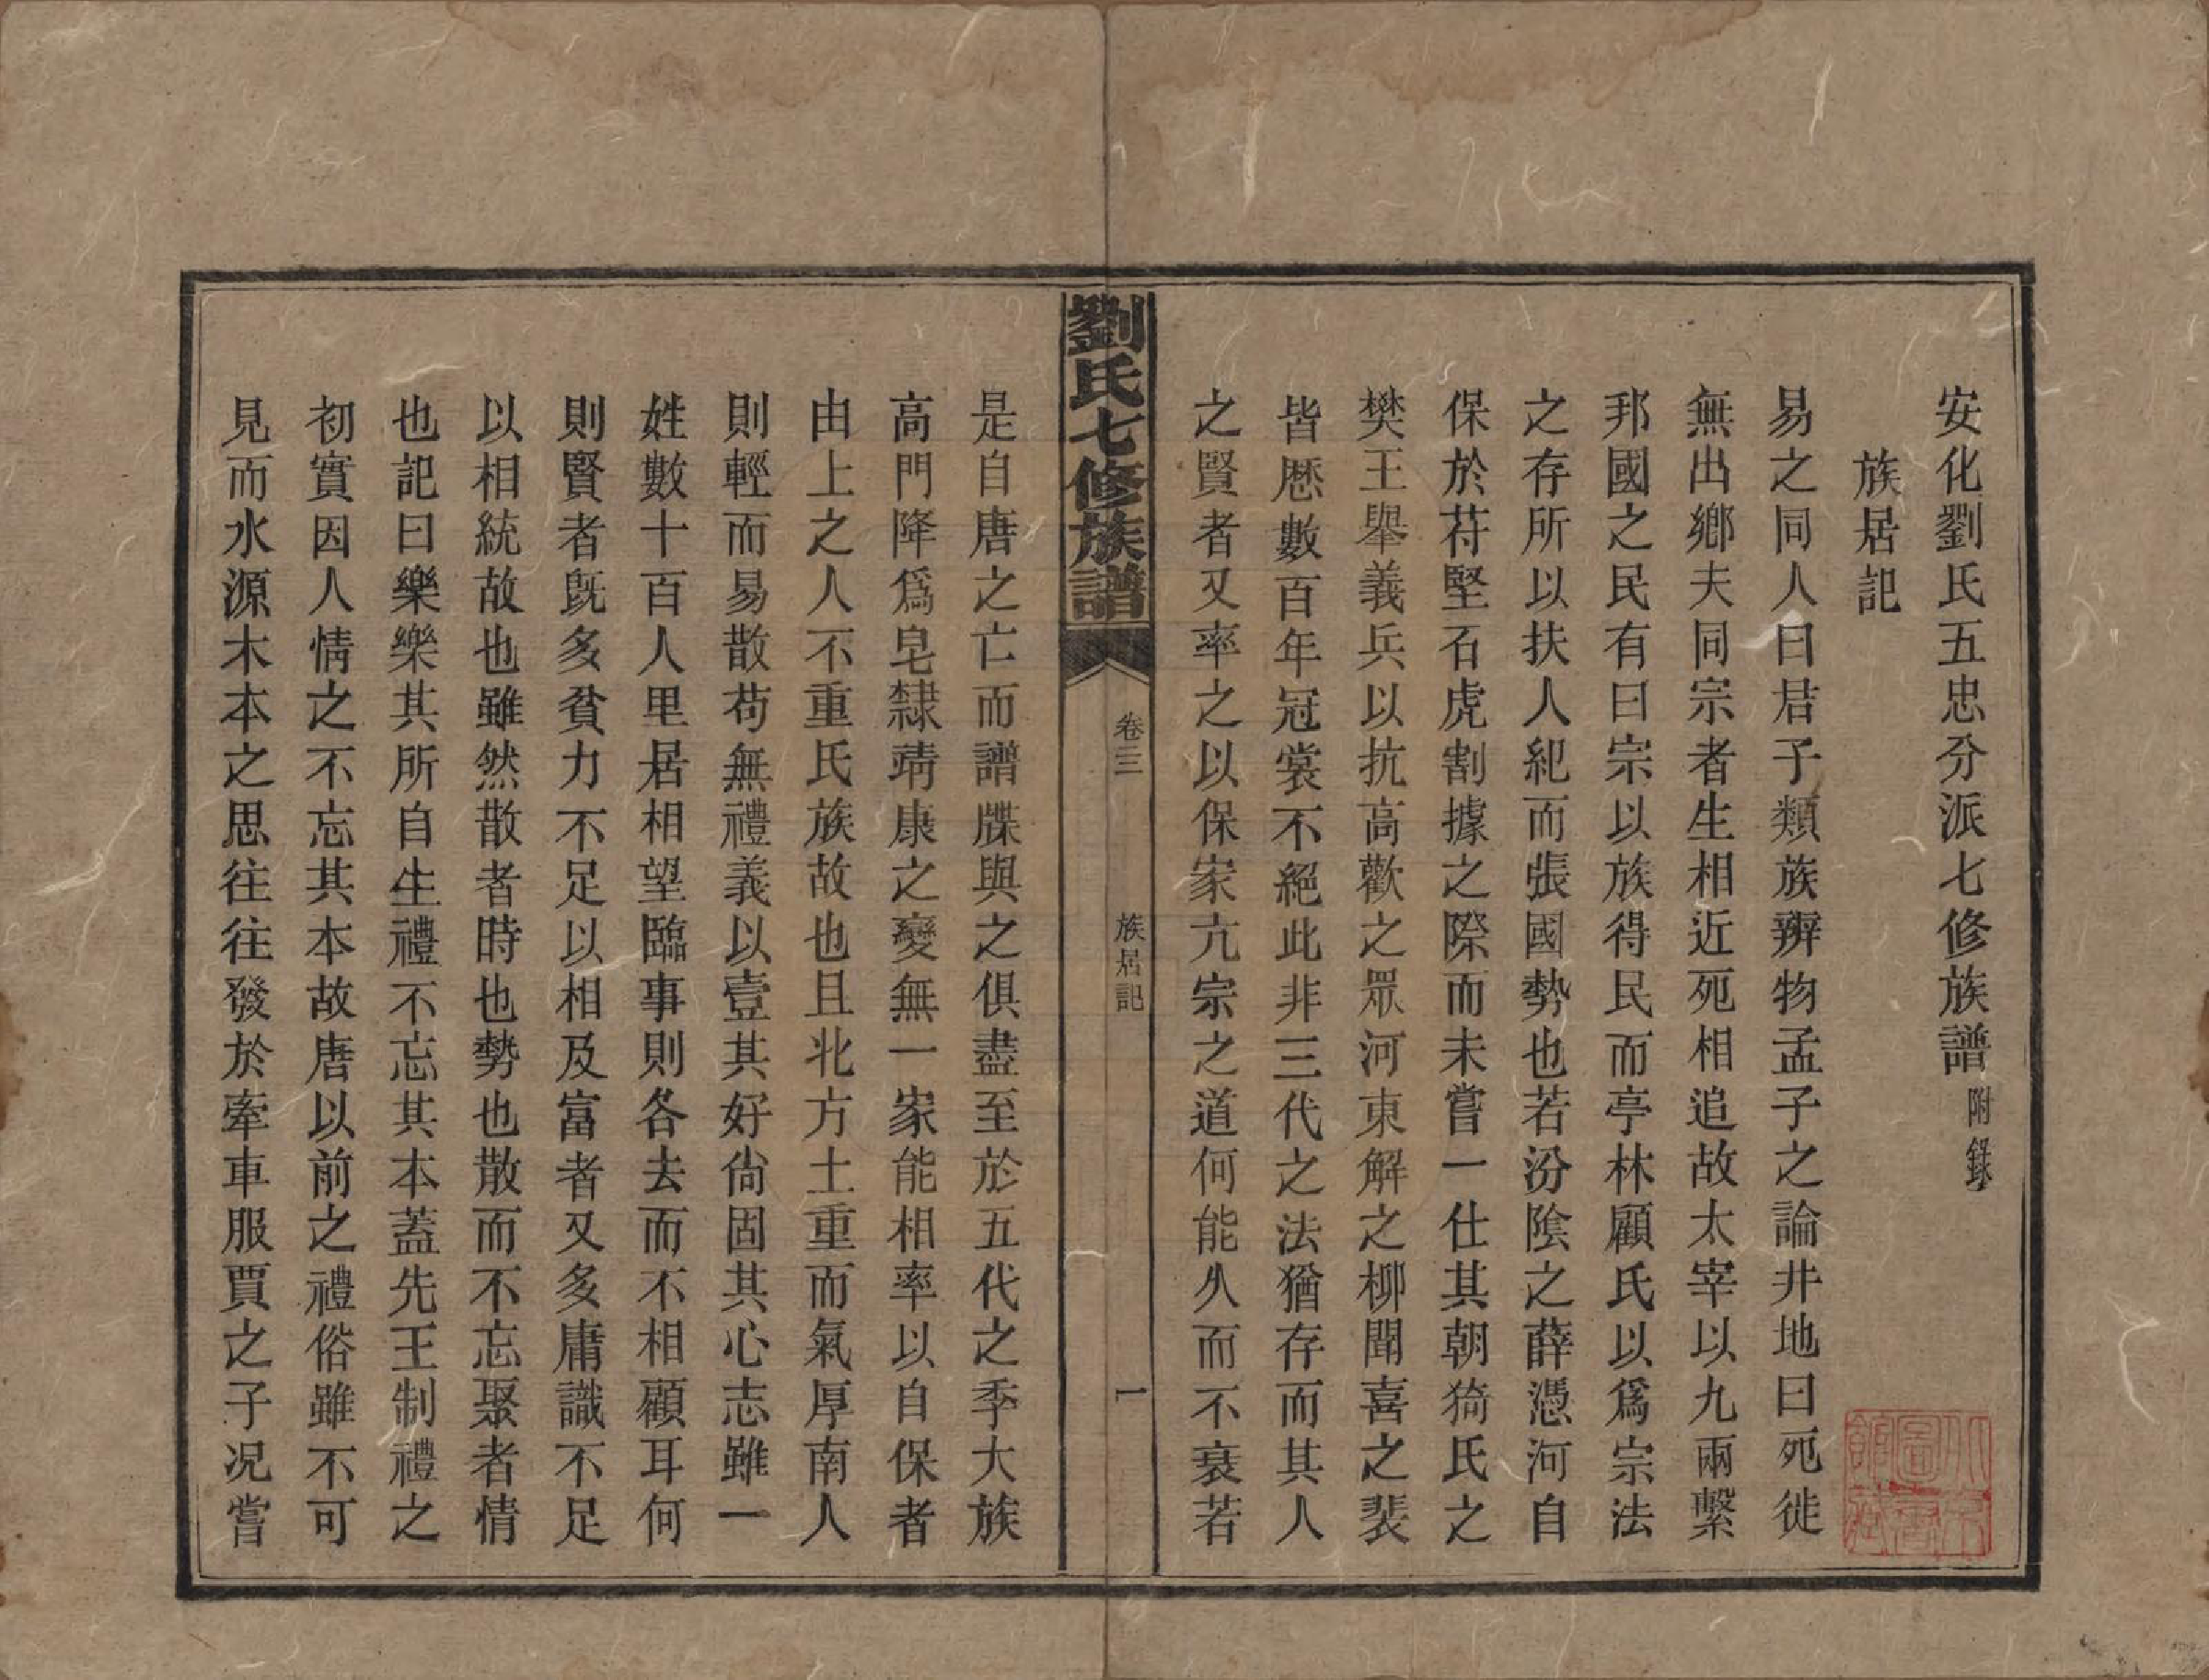 安化劉氏五忠分派七修族譜附錄
族居記
易之同人曰君子類族辨物孟子之論井地曰死徙
無出鄉夫同宗者生相近死相追故太宰以九兩繫
邦國之民有曰宗以族得民而亭林顧氏以爲宗法
之存所以扶人紀而張國勢也若汾陰之薛憑河自
保於苻堅石虎割據之際而未嘗一仕其朝猗氏之
樊王舉義兵以抗高歡之眾河東解之柳聞喜之裴
皆歷數百年冠裳不絕此非三代之法猶存而其人
之賢者又率之以保家亢宗之道何能久而不衰若
劉氏七修族譜
卷三
族居記
一
是自唐之亡而譜牒與之俱盡至於五代之季大族
高門降爲皂隸靖康之變無一家能相率以自保者
由上之人不重氏族故也且北方土重而氣厚南人
則輕而易散苟無禮義以壹其好尚固其心志雖一
姓數十百人里居相望臨事則各去而不相顧耳何
則賢者旣多貧力不足以相及富者又多庸識不足
以相統故也雖然散者時也勢也散而不忘聚者情
也記曰樂樂其所自生禮不忘其本蓋先王制禮之
初實因人情之不忘其本故唐以前之禮俗雖不可
見而水源木本之思往往發於牽車服賈之子況嘗